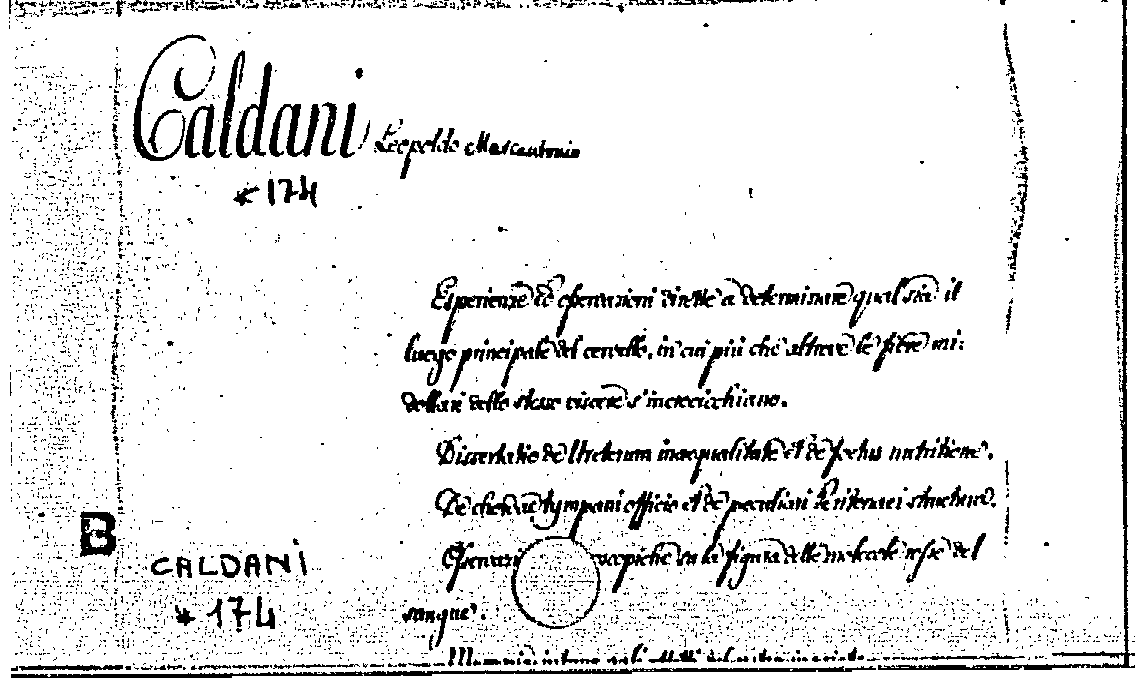 Caldani Leopoldo Marcantonio
* 174
Esperienze ed osservazioni dirette a determinare qual sia il
luogo principale del cervello, in cui più che altrove le fibre mi:
dollari dello stesso viscere s'incrocicchiano.
Dissertatio de Ureterum inaequalitate et de foetus nutritione.
De chordae tympani officio et de peculiari peritonaei structura.
Osservazi copiche su la figura delle molecole rosse del
sangue.
B
CALDANI
* 174